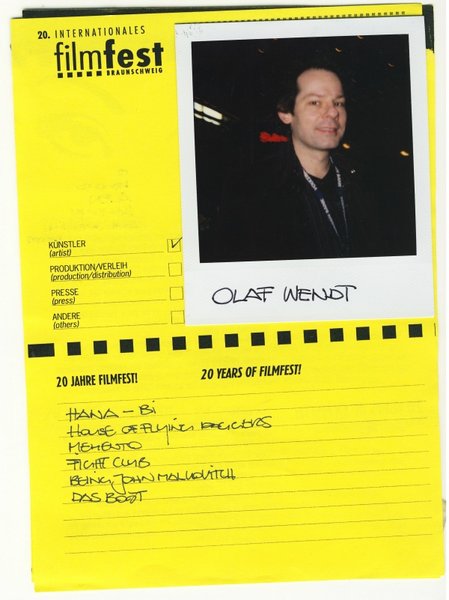 20. INTERNATIONALES
filmfest
BRAUNSCHWEIG
KÜNSTLER
(artist)
PRODUKTION/VERLEIH
(production/distribution)
PRESSE
(press)
ANDERE
(others)
OLAF WENDT
20 JAHRE FILMFEST!
20 YEARS OF FILMFEST!
HANA-BI
HOUSE OF FLYING DAGGERS
MEMENTO
FIGHT CLUB
BEING JOHN MALKOVITCH
DAS BOOT